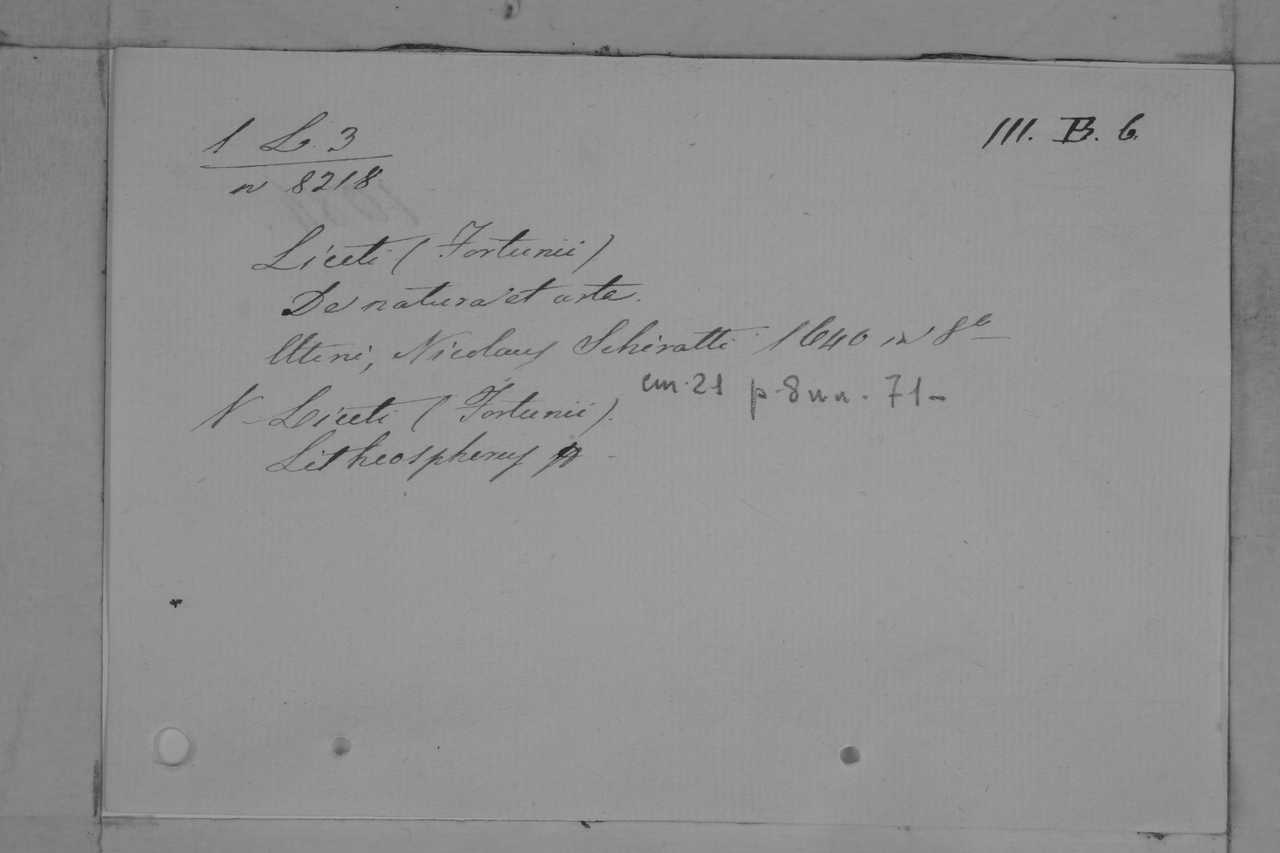 1 L. 3
III. B. 6.
n 8218
Liceti (Fortunii)
De natura et arte.
Utini, Nicolaus Schiratti 1640 in 8°
cm. 21 p. 8 nn. 71-
N - Liceti (Fortunii).
Litheosphorus